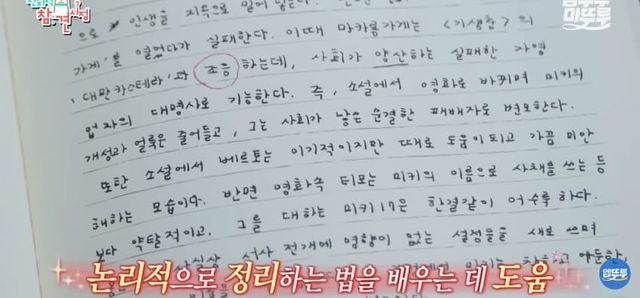 참견
으로 인생을 지옥으로 밀어 넣는다.
가게'를 열었다가 실패한다. 이때 마카롱가게는 <기생충>의
'대만 카스테라'와 조응하는데, 사회가 양산하는 실패한 자영
업자의 대명사로 기능한다. 즉, 소설에서 영화로 바뀌며 미키의
개성과 얼룩은 줄어들고, 그는 사회가 낳은 순결한 패배자로 변모한다.
또한 소설에서 베르토는 이기적이지만 때로 도움이 되고 가끔 미안
해하는 모습이다. 반면 영화속 티모는 미키의 이름으로 사채를 쓰는 등
보다 약탈적이고, 그를 대하는 미키17은 한결같이 어수룩하다.
서사 전개에 영향이 없는 설정들을 새로 쓰며
논리적으로 정리하는 법을 배우는 데 도움
엠뚜루
마뚜루
엠뚜루